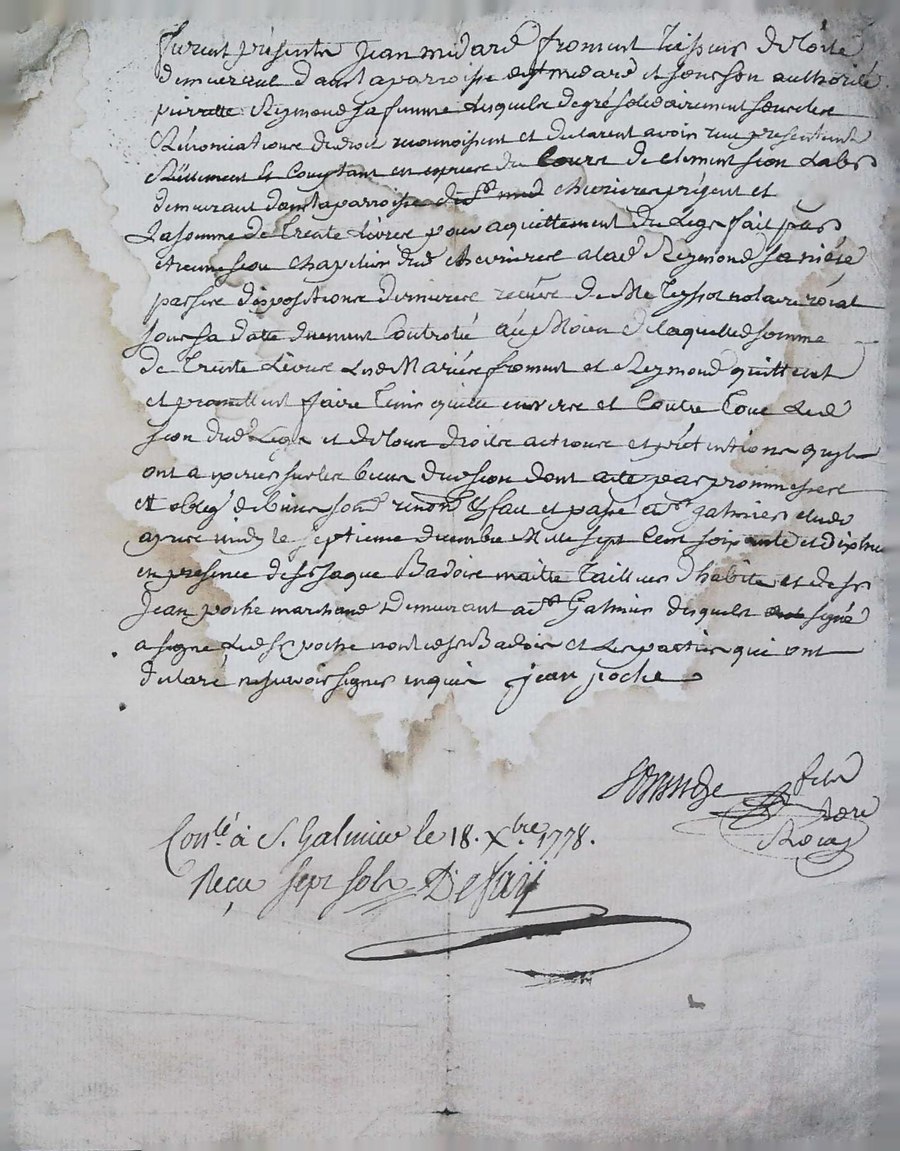 furent présents Jean midard froment tisseur de toile
demeurant dans la parroisse de st medard et sous son authorité
pierrette Reymond sa femme lesquels de gré solidairement sous les
Rénonciations de droit reconnoissent et declarent avoir reçu presentement
Réellement et Comptant en espèces du Cours de clement sion
demeurant dans la parroisse de chevrieres présent et
La somme de trente Livres pour aquittement du Legs fait par
sion chapelier dud chevrieres a lad Reymond sa niése
par ses dispositions dernieres reçues de Me teyssot notaire roial
sous sa datte duement Controlé au Moien de laquelle somme
de trente Livres Lesd Mariés froment et Reymond quittent
et promettent faire tenir quitte envers et Contre tous Led
sion dud Legs et de tous droits actions et prétentions qu'ils
ont a sur les biens dud sion dont acte par promesses
et oblig. de biens soum. renon. fait et passé a st galmier etude
apres midy le septieme decembre Mille sept Cent soixante et dixhuit
en presence de sr Jaque Badoir maitre tailleur d'habits et de sr
Jean poche marchand demeurant a st Galmier desquels signé
a signé Led sr poche non led sr Badoir et Les parties qui ont
declaré ne savoir signer enquis jean poche
Conlé à S. Galmier le 18. Xbre 1778.
Reçu sept sols Desaÿ